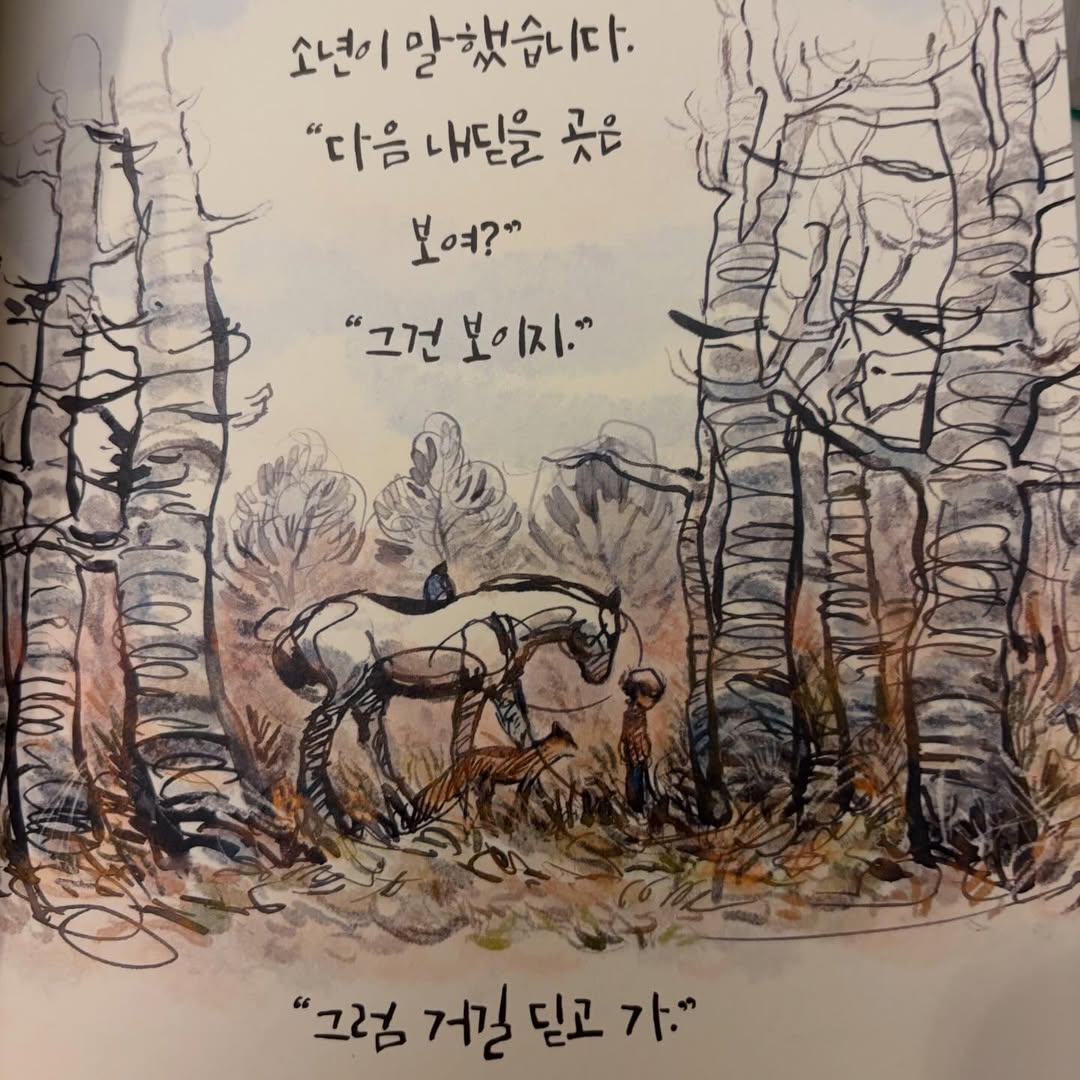 소년이 말했습니다.
“다음 내딛을 곳은
보여?”
“그건 보이지.”
“그럼 거길 딛고 가.”